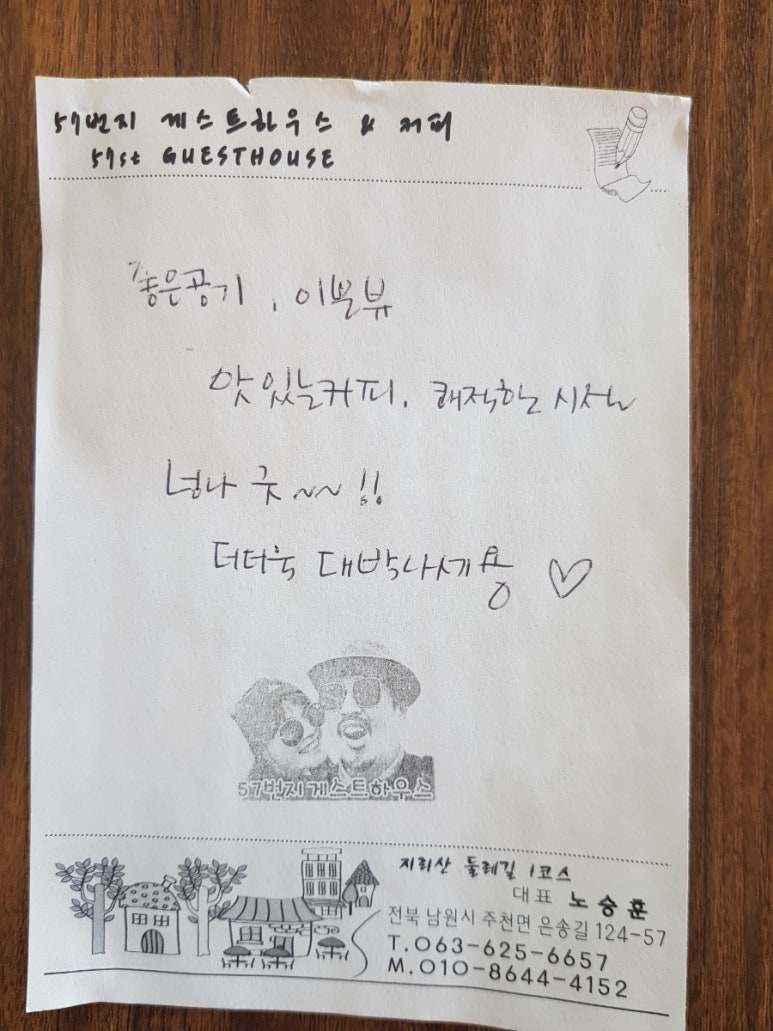 57번지 게스트하우스 & 커피
57st GUESTHOUSE
좋은공기, 이쁜뷰
맛있는커피. 쾌적한 시설
넘나 굿~~!!
더더욱 대박나세용 ♡
57번지게스트하우스
지리산 둘레길 1코스
대표 노승훈
전북 남원시 주천면 은송길 124-57
T.063-625-6657
M.010-8644-4152